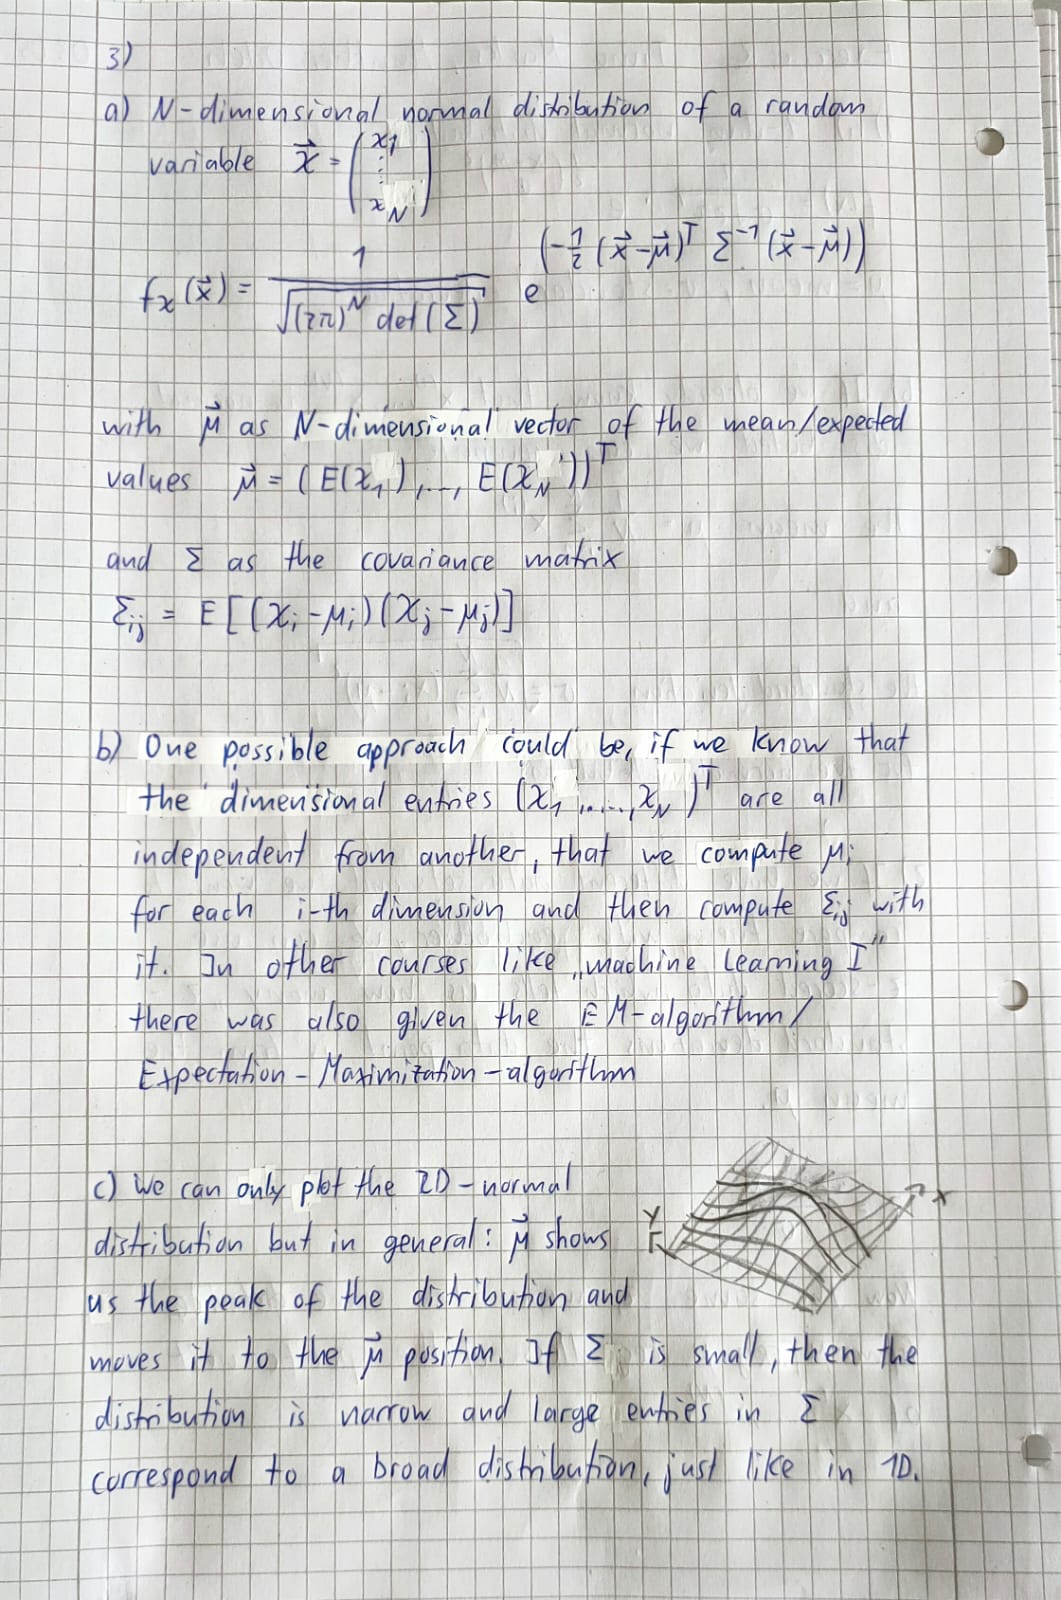 3)
a) N-dimensional normal distribution of a random
variable x⃗ = (x1 ⋮ xN)
fx(x⃗) = 1/√((2π)^N det(Σ)) e^(-1/2 (x⃗-μ⃗)^T Σ^-1 (x⃗-μ⃗))
with μ⃗ as N-dimensional vector of the mean/expected
values μ⃗ = (E(x1), ..., E(xN))^T
and Σ as the covariance matrix
Σij = E[(xi-μi)(xj-μj)]
b) One possible approach could be, if we know that
the dimensional entries (x1, ...., xN)^T are all
independent from another, that we compute μi
for each i-th dimension and then compute Σij with
it. In other courses like „machine learning I"
there was also given the EM-algorithm/
Expectation-Maximization-algorithm
c) We can only plot the 2D-normal
distribution but in general: μ⃗ shows
us the peak of the distribution and
moves it to the μ⃗ position. If Σ is small, then the
distribution is narrow and large entries in Σ
correspond to a broad distribution, just like in 1D.
Y
X